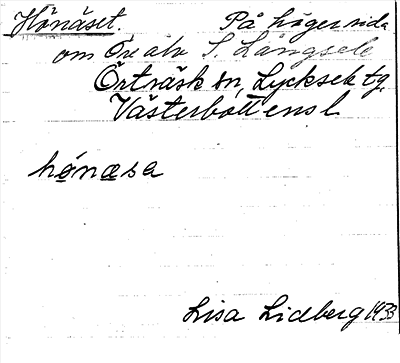 Hönäset. På höger sida
om Öre älv S. Långsele
Örträsk sn, Lycksele tg.
Västerbottens l
hönæsa
Lisa Lidberg 1933